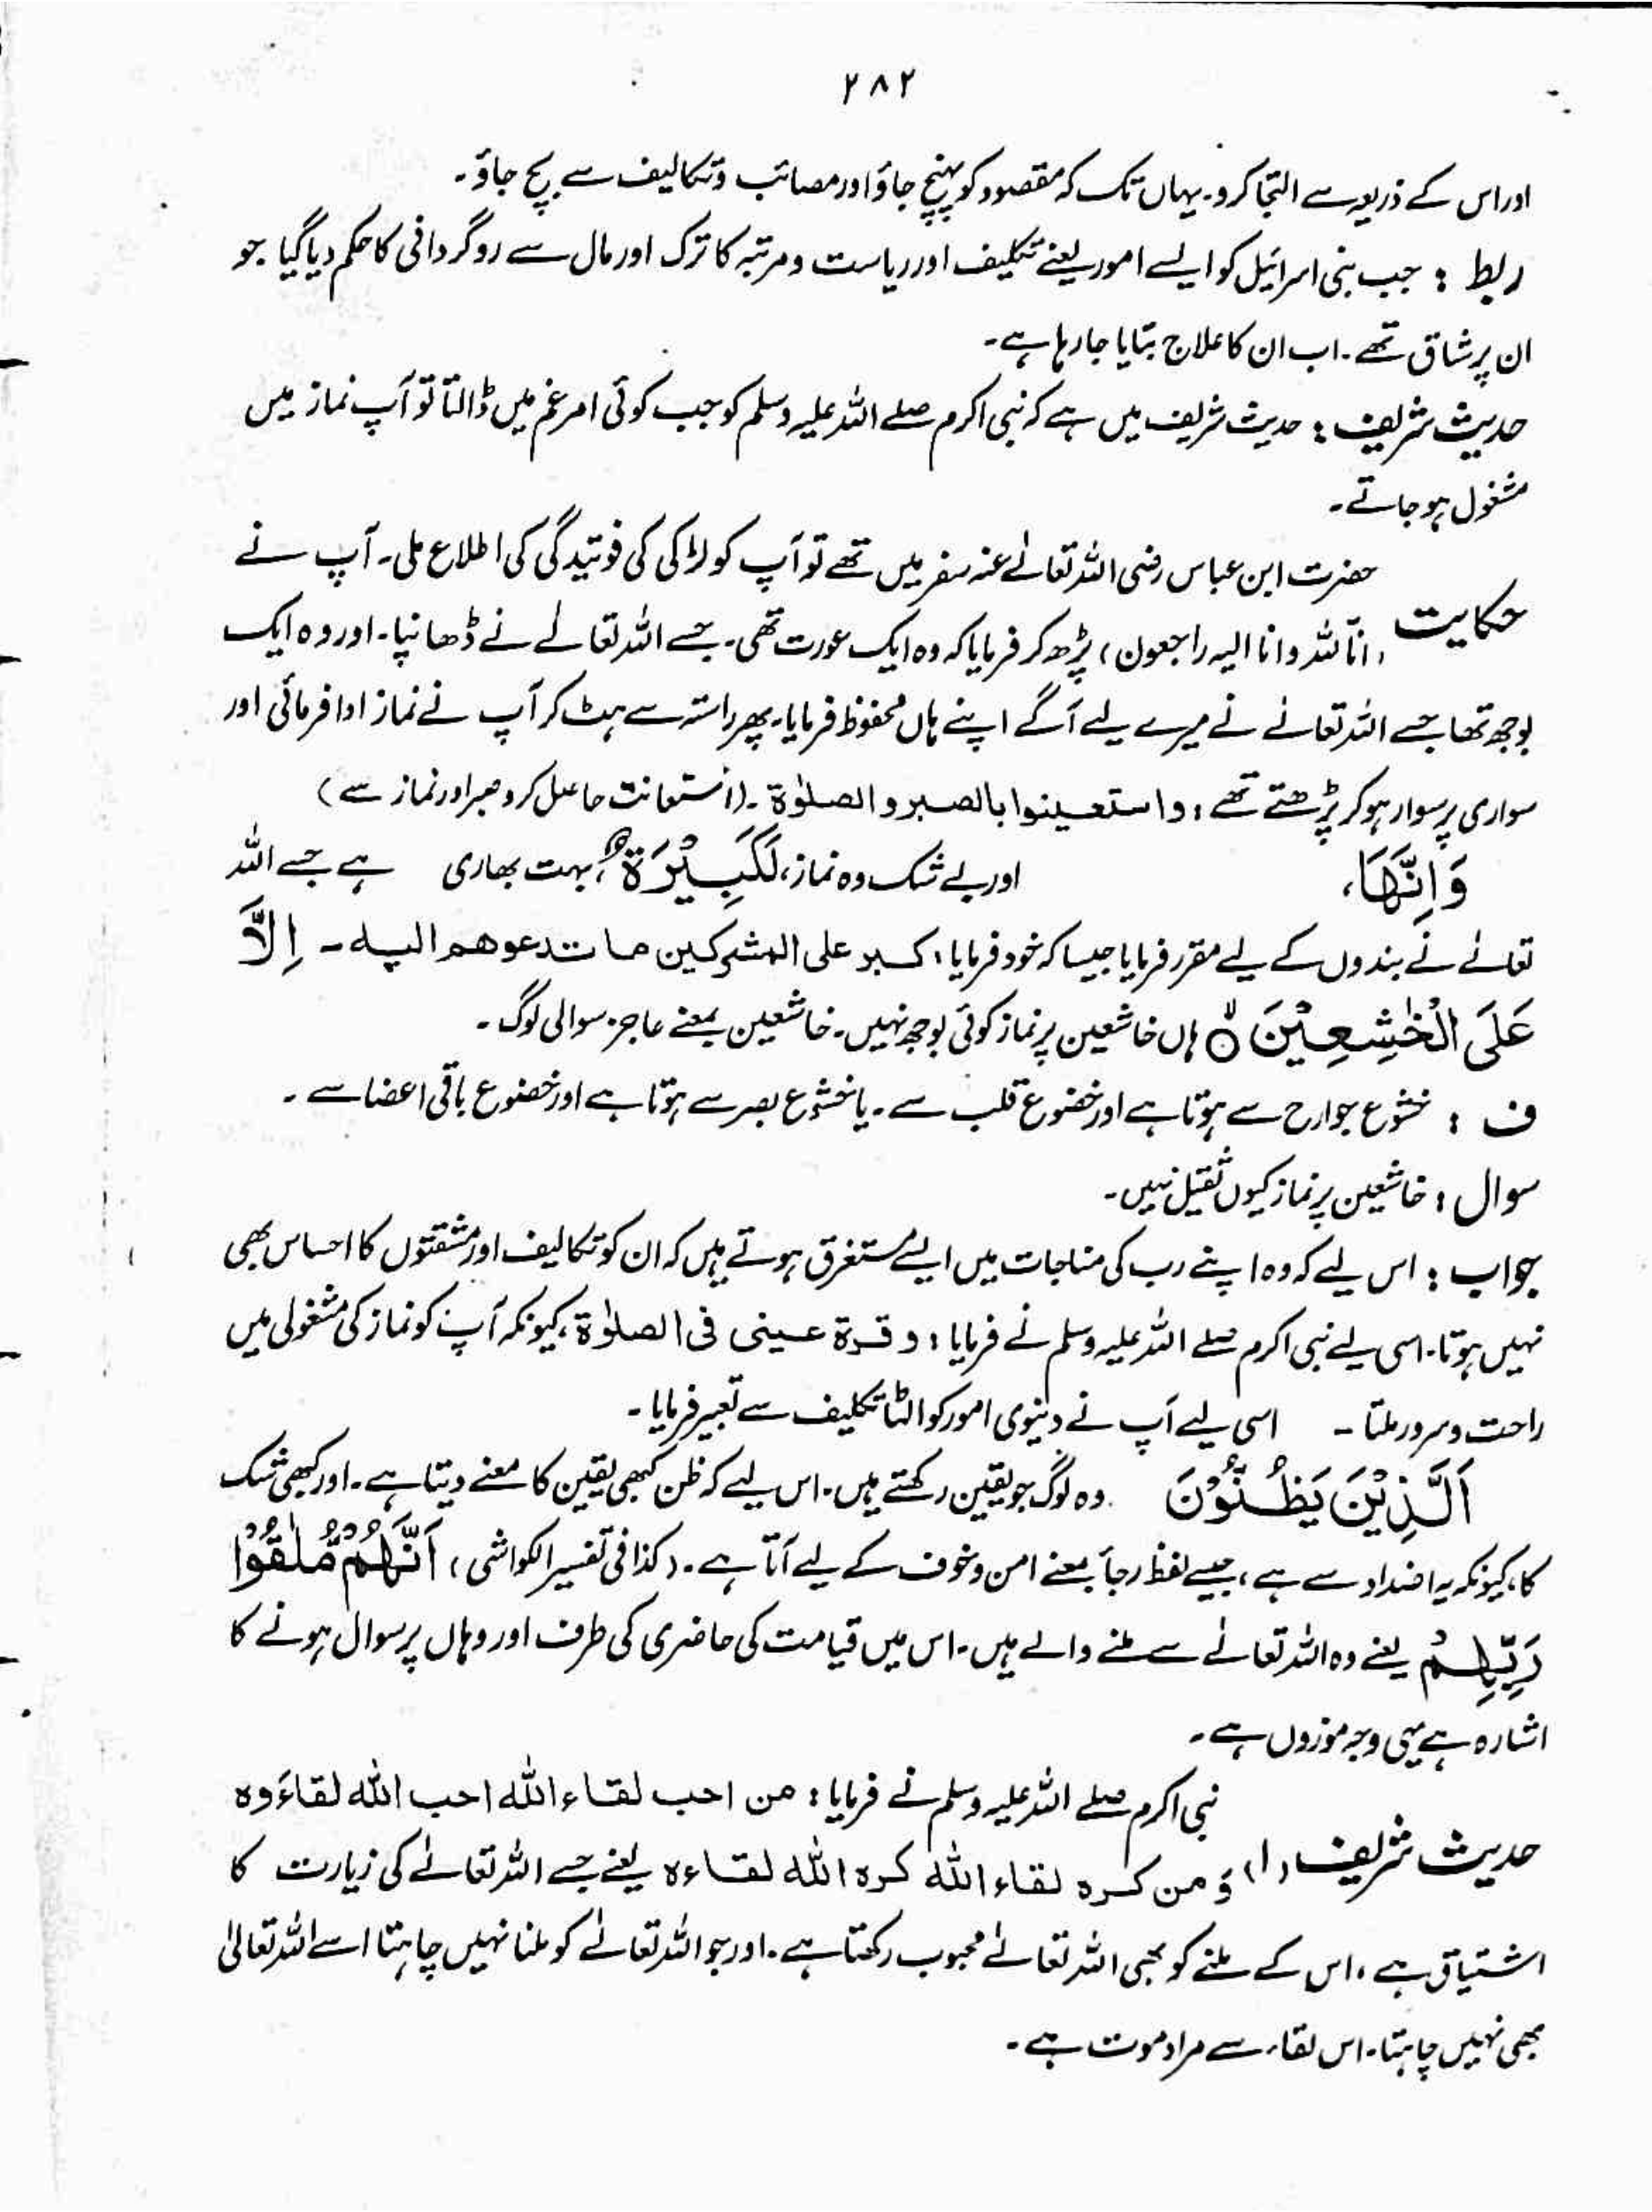 ۲۸۲
اور اس کے ذریعہ سے التجا کرو۔ یہاں تک کہ مقصود کو پہنچ جاؤ اور مصائب و تکالیف سے بچ جاؤ۔
ربط : جب بنی اسرائیل کو ایسے امور یعنے تکلیف اور ریاست و مرتبہ کا ترک اور مال سے روگردانی کا حکم دیا گیا جو
ان پر شاق تھے۔ اب ان کا علاج بتایا جا رہا ہے۔
حدیث شریف : حدیث شریف میں ہے کہ نبی اکرم صلے اللہ علیہ وسلم کو جب کوئی امر غم میں ڈالتا تو آپ نماز میں
مشغول ہو جاتے۔
حضرت ابن عباس رضی اللہ تعالےٰ عنہ سفر میں تھے تو آپ کو لڑکی کی فوتیدگی کی اطلاع ملی۔ آپ نے
حکایت (انّا للہ وانا الیہ راجعون) پڑھ کر فرمایا کہ وہ ایک عورت تھی۔ جسے اللہ تعالےٰ نے ڈھانپا۔ اور وہ ایک
بوجھ تھا جسے اللہ تعالےٰ نے میرے لیے آگے اپنے ہاں محفوظ فرمایا۔ پھر راستہ سے ہٹ کر آپ نے نماز ادا فرمائی اور
سواری پر سوار ہو کر پڑھتے تھے : واستعینوا بالصبر و الصلوٰۃ۔ (استعانت حاصل کرو صبر اور نماز سے)
وَاِنَّهَا، اور بے شک وہ نماز، لَكَبِيْرَةٌ، بہت بھاری ہے جسے اللہ
تعالےٰ نے بندوں کے لیے مقرر فرمایا جیسا کہ خود فرمایا : کبر علی المشرکین ما تدعوھم الیہ۔ اِلَّا
عَلَى الْخٰشِعِيْنَ ۝ ہاں خاشعین پر نماز کوئی بوجھ نہیں۔ خاشعین بمعنے عاجز سوالی لوگ۔
ف : خشوع جوارح سے ہوتا ہے اور خضوع قلب سے۔ یا خشوع بصر سے ہوتا ہے اور خضوع باقی اعضا سے۔
سوال : خاشعین پر نماز کیوں ثقیل نہیں۔
جواب : اس لیے کہ وہ اپنے رب کی مناجات میں ایسے مستغرق ہوتے ہیں کہ ان کو تکالیف اور مشقتوں کا احساس بھی
نہیں ہوتا۔ اسی لیے نبی اکرم صلے اللہ علیہ وسلم نے فرمایا : و قرۃ عینی فی الصلوٰۃ، کیونکہ آپ کو نماز کی مشغولی میں
راحت و سرور ملتا ۔ اسی لیے آپ نے دنیوی امور کو الٹا تکلیف سے تعبیر فرمایا۔
اَلَّذِيْنَ يَظُنُّوْنَ وہ لوگ جو یقین رکھتے ہیں۔ اس لیے کہ ظن کبھی یقین کا معنے دیتا ہے۔ اور کبھی شک
کا، کیونکہ یہ اضداد سے ہے، جیسے لفظ رجأ بمعنے امن و خوف کے لیے آتا ہے۔ (کذا فی تفسیر الکواشی) اَنَّهُمْ مُّلٰقُوْا
رَبِّهِمْ یعنے وہ اللہ تعالےٰ سے ملنے والے ہیں۔ اس میں قیامت کی حاضری کی طرف اور وہاں پر سوال ہونے کا
اشارہ ہے یہی وجہ موزوں ہے۔
نبی اکرم صلے اللہ علیہ وسلم نے فرمایا : من احب لقاء اللہ احب اللہ لقاءَہ
حدیث شریف (۱) وَ من کرہ لقاء اللہ کرہ اللہ لقاءہ یعنے جسے اللہ تعالےٰ کی زیارت کا
اشتیاق ہے، اس کے ملنے کو بھی اللہ تعالےٰ محبوب رکھتا ہے۔ اور جو اللہ تعالےٰ کو ملنا نہیں چاہتا اسے اللہ تعالیٰ
بھی نہیں چاہتا۔ اس لقاء سے مراد موت ہے۔